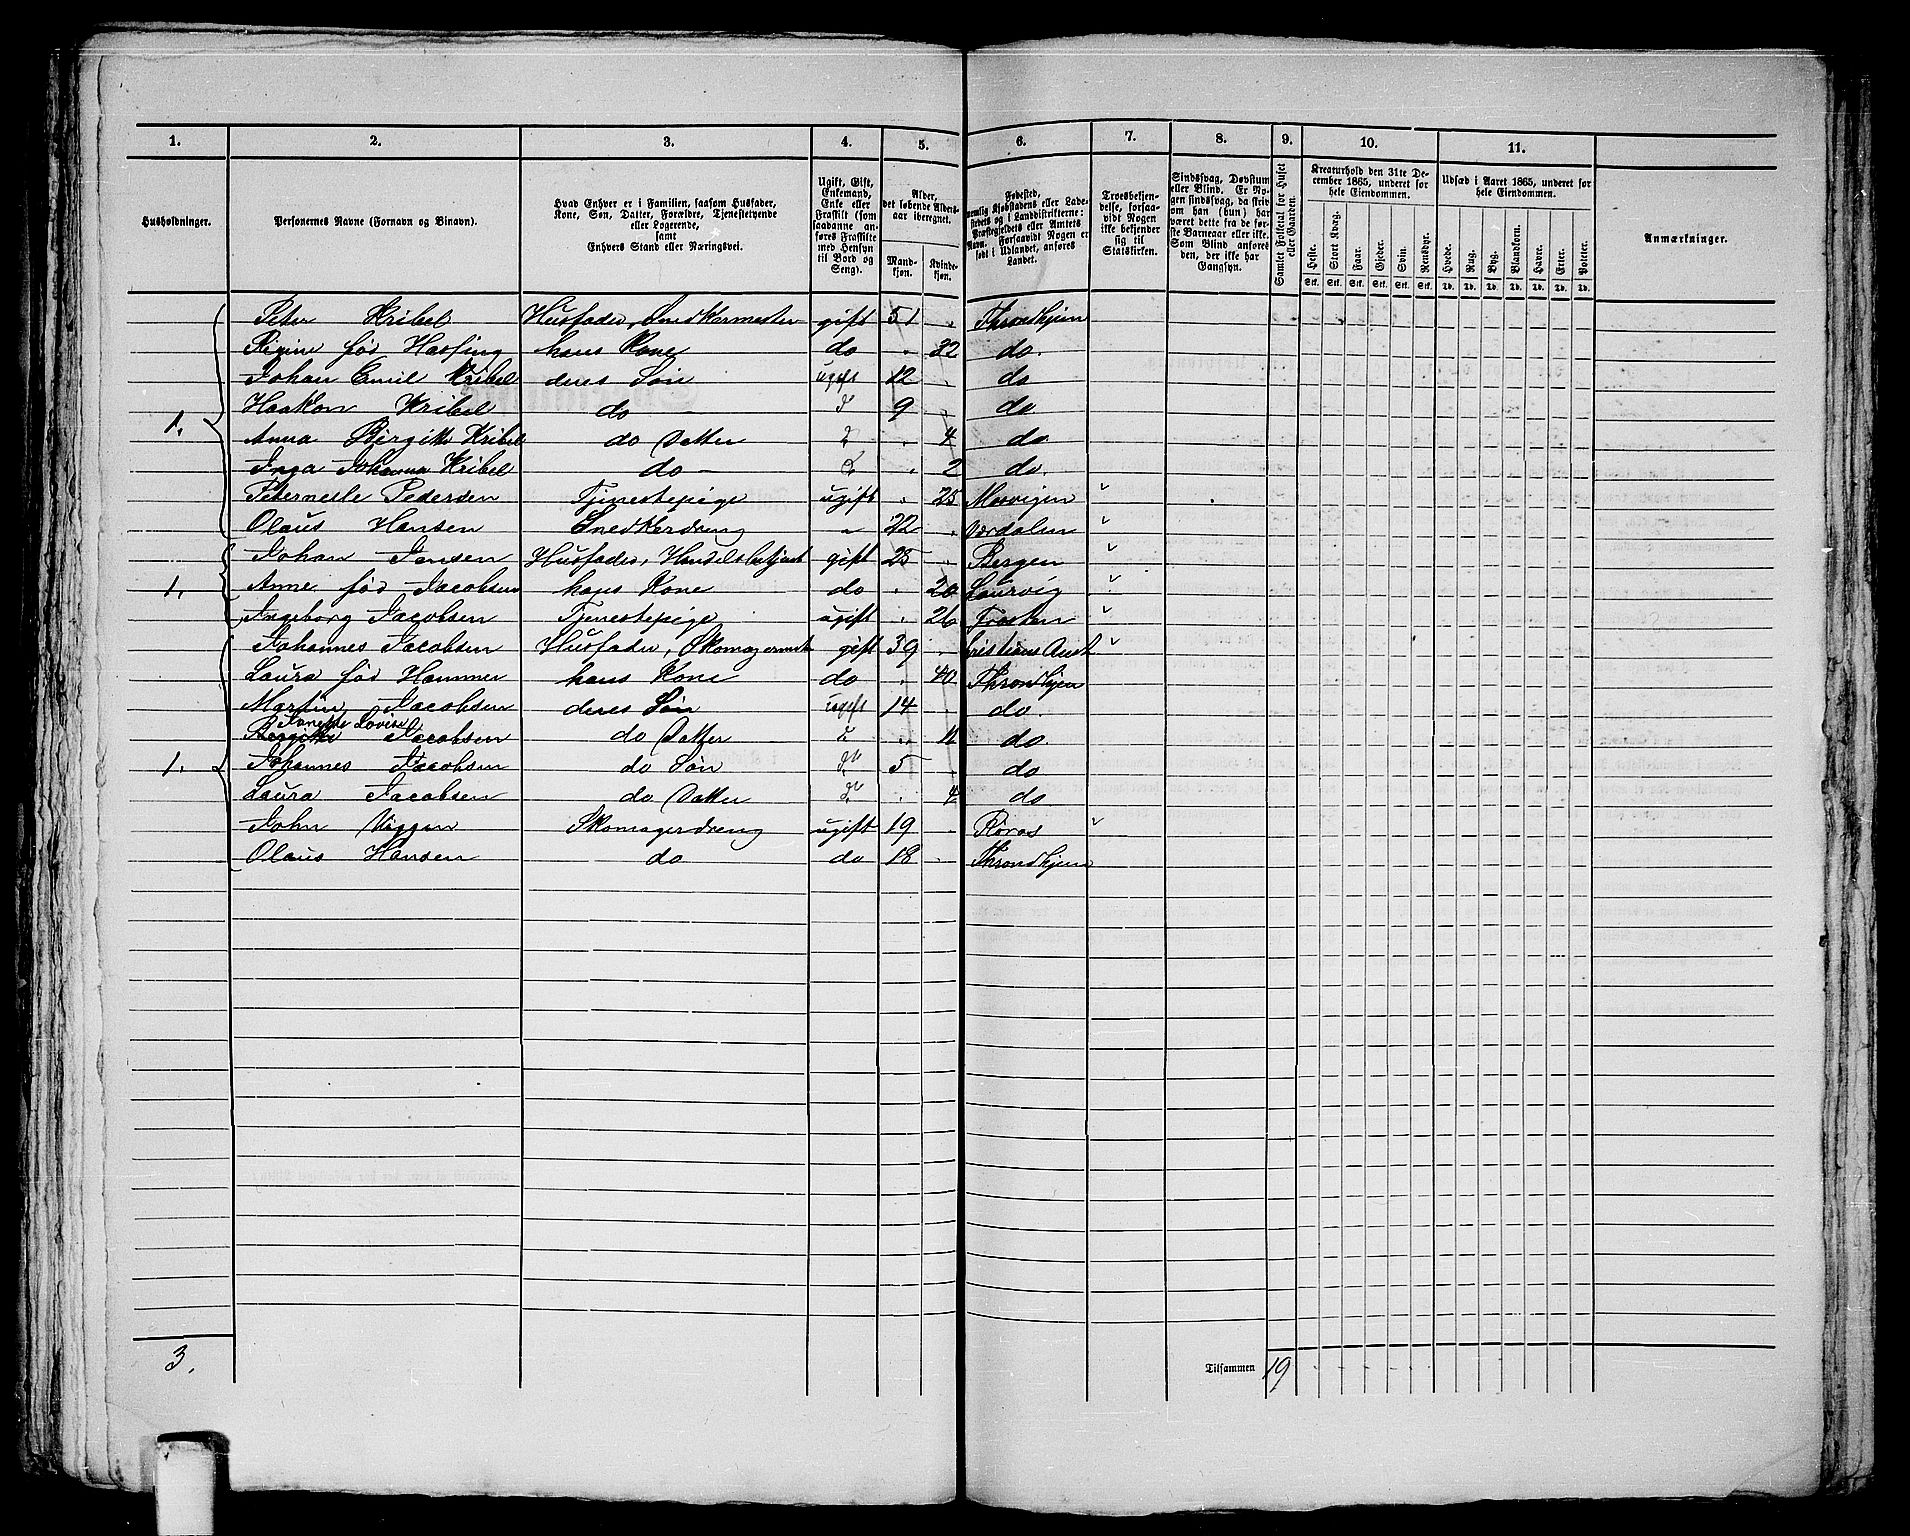 1. 2. 3. 4. 5. 6. 7. 8. 9. 10. 11.
Husholdninger.
Personernes Navne (Fornavn og Binavn).
Hvad Enhver er i Familien, saasom Husfader,
Kone, Søn, Datter, Forældre, Tjenestetyende
eller Logerende,
samt
Enhvers Stand eller Næringsvei.
Ugift, Gift,
Enkemand,
Enke eller
Fraskilt (som
saadanne an-
føres Fraskilte
med Hensyn
til Bord og
Seng).
Alder,
det løbende Alders-
aar iberegnet.
Mand-
kjøn.
Kvinde-
kjøn.
Fødested,
nemlig Kjøbstadens eller Lade-
stedets og i Landdistrikterne:
Præstegjeldets eller Amtets
Navn. Forsaavidt Nogen er
født i Udlandet, anføres
Landet.
Troesbekjen-
delse, forsaa-
vidt Nogen
ikke bekjender
sig til
Statskirken.
Sindssvag, Døvstum
eller Blind. Er No-
gen sindssvag, da skriv
om han (hun) har
været dette fra de før-
ste Barneaar eller ikke.
Som Blind anføres
den, der ikke har
Gangsyn.
Samlet Folketal for Huset
eller Gaarden.
Kreaturhold den 31te De-
cember 1865, underet for
hele Eiendommen.
Heste. Stort Kvæg. Faar. Gjeder. Svin. Rensdyr.
Stk. Stk. Stk. Stk. Stk. Stk.
Udsæd i Aaret 1865, underet for
hele Eiendommen.
Hvede. Rug. Byg. Blandkorn. Havre. Erter. Poteter.
Td. Td. Td. Td. Td. Td. Td.
Anmærkninger.
Peter Kribel Husfader, Snedkermester gift 51 Throndhjem
født Hassing hans Kone do 32 do.
Johan Emil Kribel deres Søn ugift 12 do
1. Haakon Kribel do 9 do
Anna Birgitte Kribel do Datter 4 do
Inga Johanna Kribel do 2 do.
Pedersen Tjenestepige ugift 25 Mosvigen
Olaus Hansen Snedkerdreng 22 Værdalen
Johan Jensen Husfader, Handelsbetjent gift 25 Bergen
1. Anne fød Jacobsen hans Kone do 20 Laurvig
Ingeborg Jacobsen Tjenestepige ugift 26 Frosten
Johannes Jacobsen Husfader, Skomagermest gift 39 Cristians Amt
Laura fød Hammer hans Kone do 40 Throndhjem
Martin Jacobsen deres Søn ugift 14 do.
Lovise
Jacobsen do Datter 11 do.
1. Johannes Jacobsen do Søn 5 do
Laura Jacobsen do Datter 4 do
John Viggen Skomagerdreng ugift 19 Røros
Olaus Hansen do do 18 Throndhjem
3.
Tilsammen 19